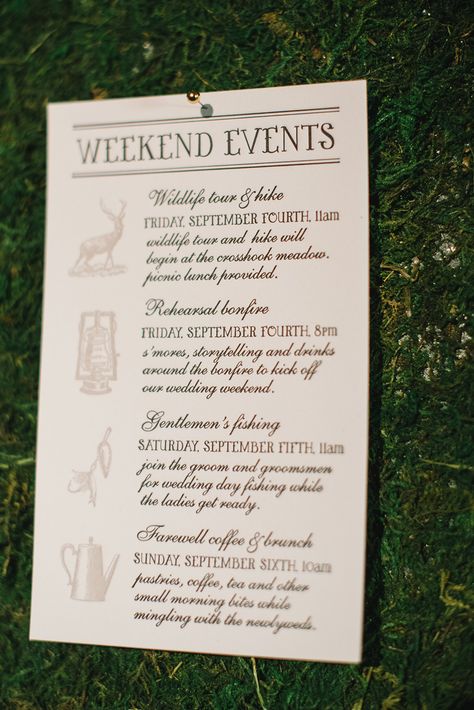 WEEKEND EVENTS
Wildlife tour & hike
FRIDAY, SEPTEMBER FOURTH, 11am
wildlife tour and hike will
begin at the crosshook meadow.
picnic lunch provided.
Rehearsal bonfire
FRIDAY, SEPTEMBER FOURTH, 8pm
s'mores, storytelling and drinks
around the bonfire to kick off
our wedding weekend.
Gentlemen's fishing
SATURDAY, SEPTEMBER FIFTH, 11am
join the groom and groomsmen
for wedding day fishing while
the ladies get ready.
Farewell coffee & brunch
SUNDAY, SEPTEMBER SIXTH, 10am
pastries, coffee, tea and other
small morning bites while
mingling with the newlyweds.